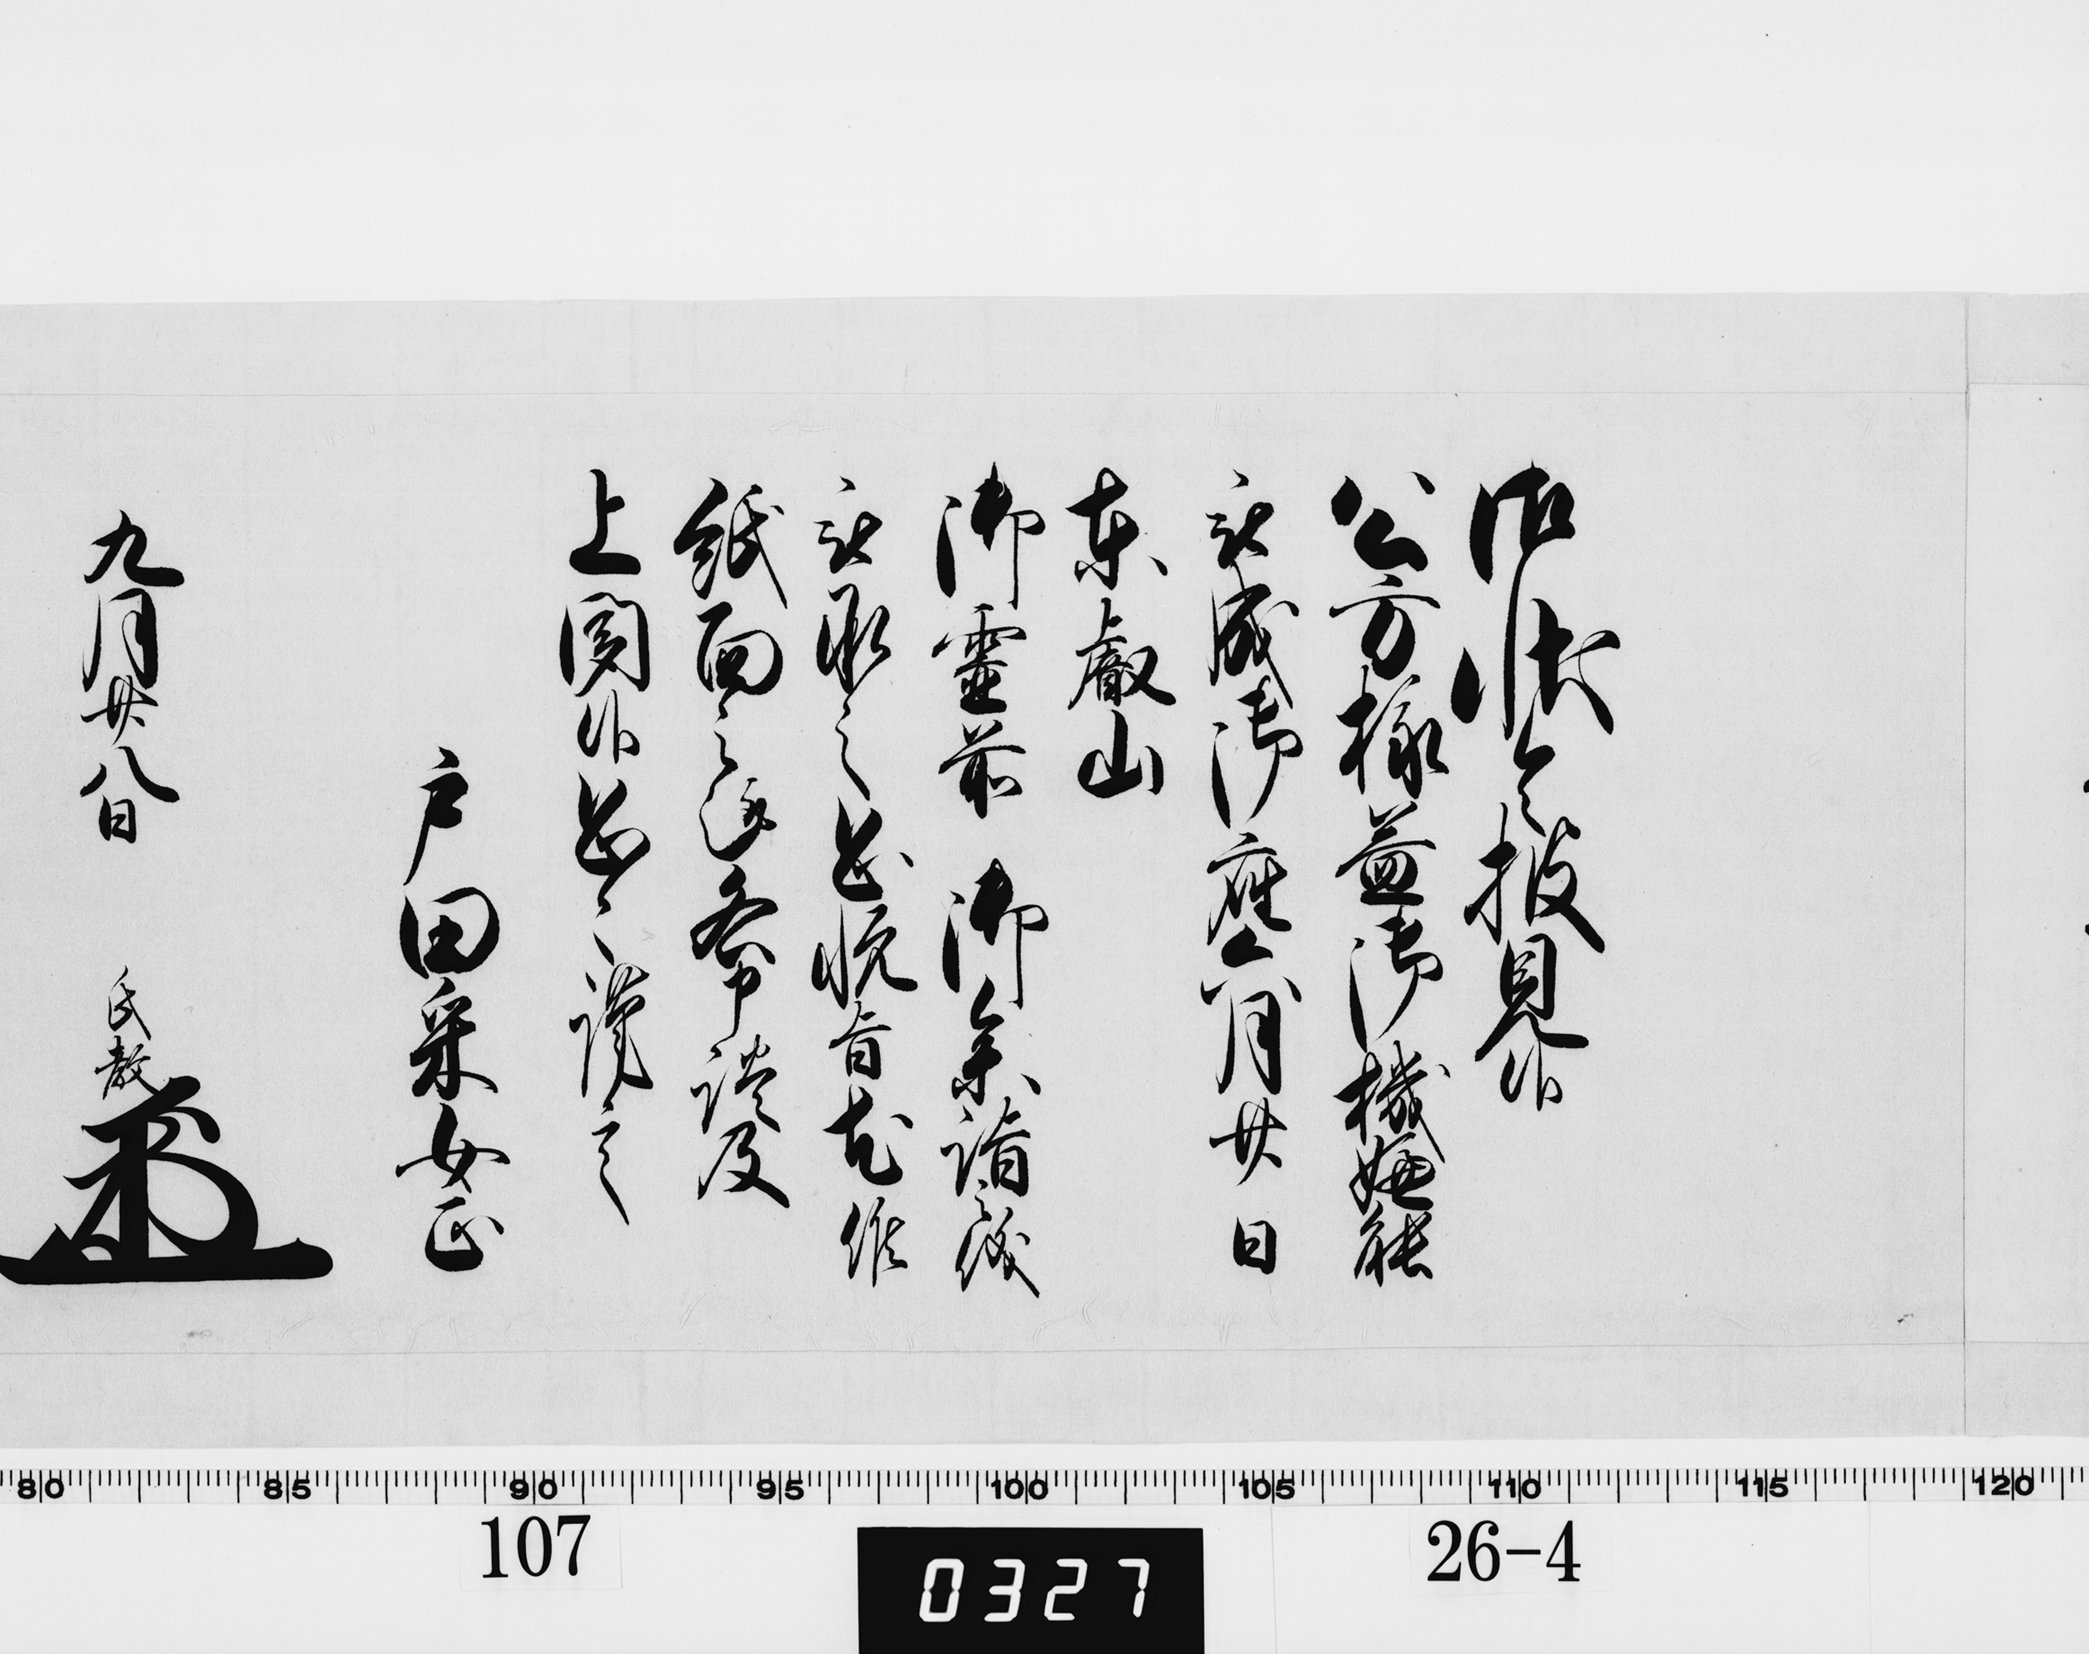 御状令披見候
公方様益御機嫌能
被成御座今月廿日
東叡山
御霊前 御参詣之儀
被承之恐悦旨尤候
紙面之趣各申談及
上聞候恐々謹言
戸田采女正
九月廿八日 氏教
80 85 90 95 100 105 110 115 120
107 0327 26-4